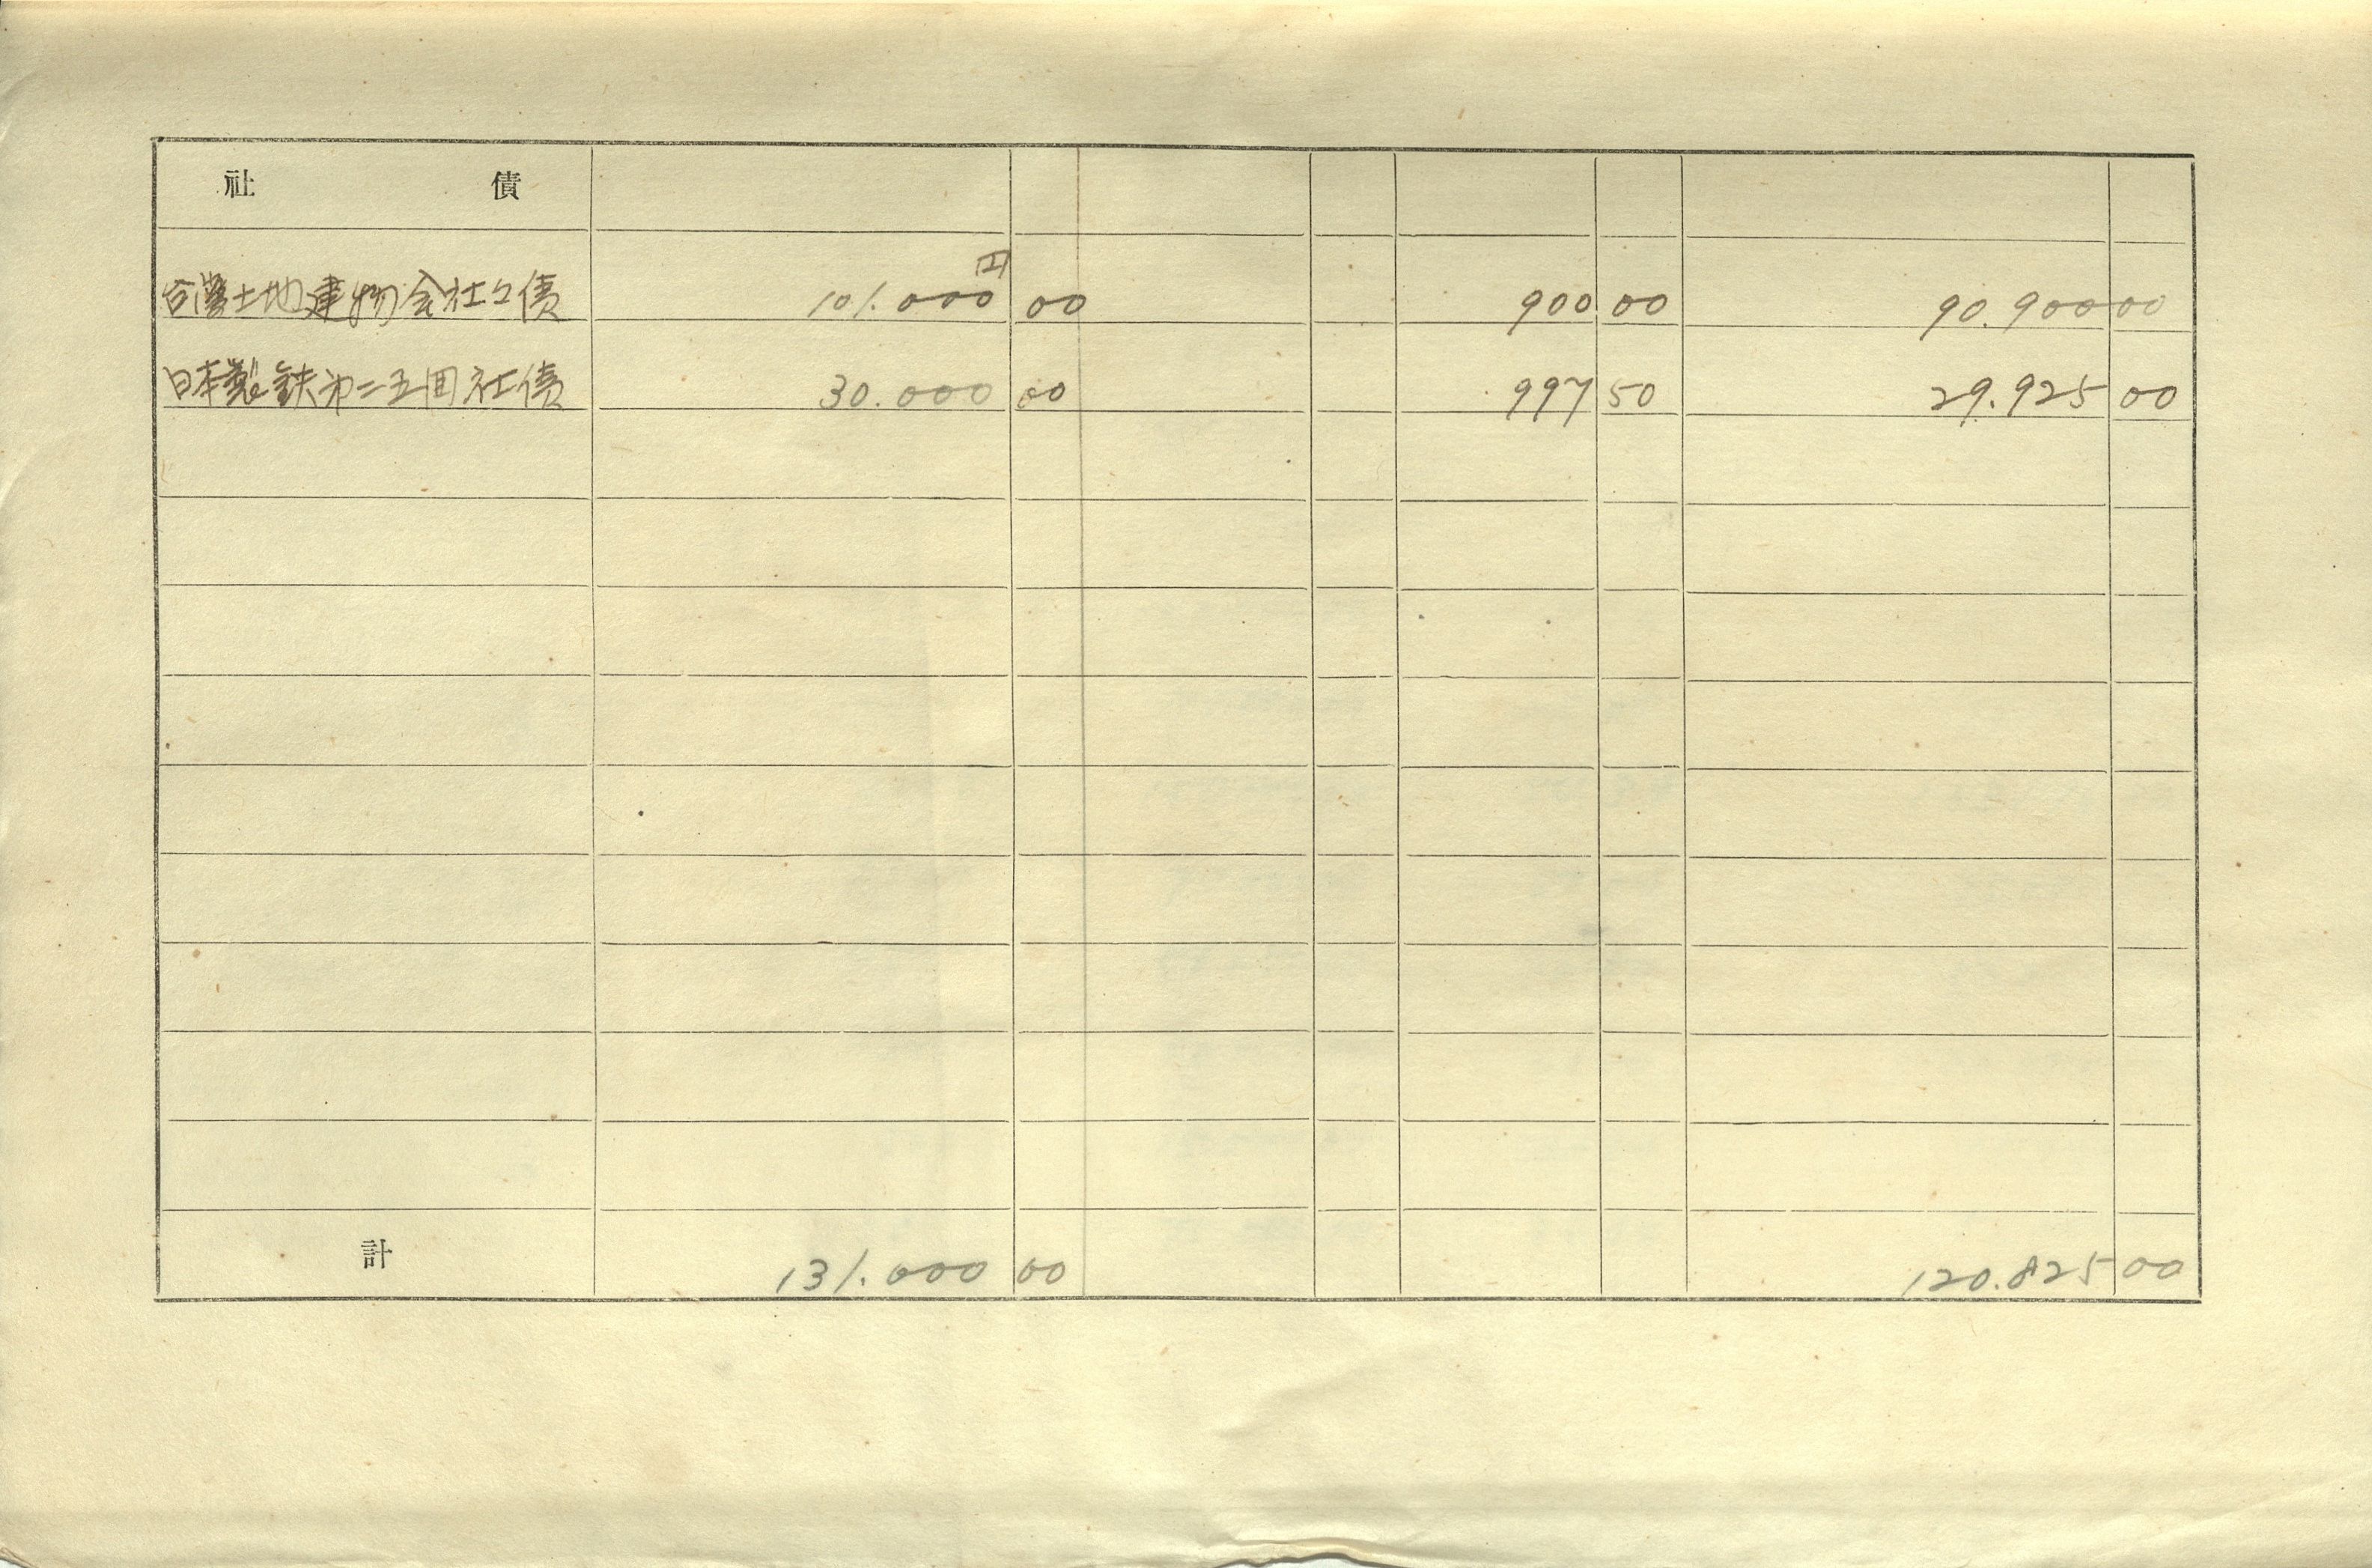 社債
円
台湾土地建物会社々債 101.000 00 900 00 90.900 00
日本製鉄第二五回社債 30.000 00 997 50 29.925 00
計 131.000 00 120.825 00